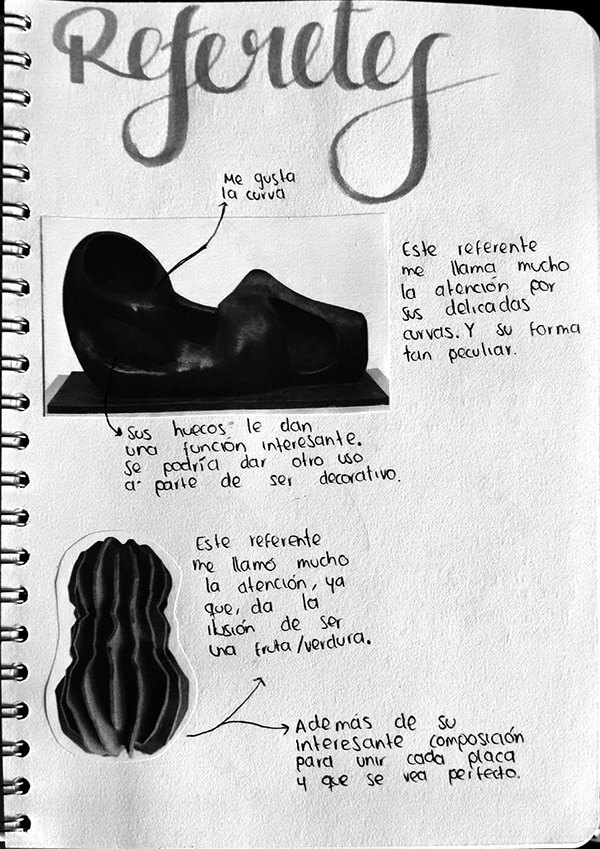 Referetes
Me gusta
la curva
Este referente
me llama mucho
la atención por
sus delicadas
curvas. Y su forma
tan peculiar.
Sus huecos le dan
una función interesante.
Se podría dar otro uso
a parte de ser decorativo.
Este referente
me llamó mucho
la atención, ya
que, da la
ilusión de ser
una fruta/verdura.
Además de su
interesante composición
para unir cada placa
y que se vea perfecto.